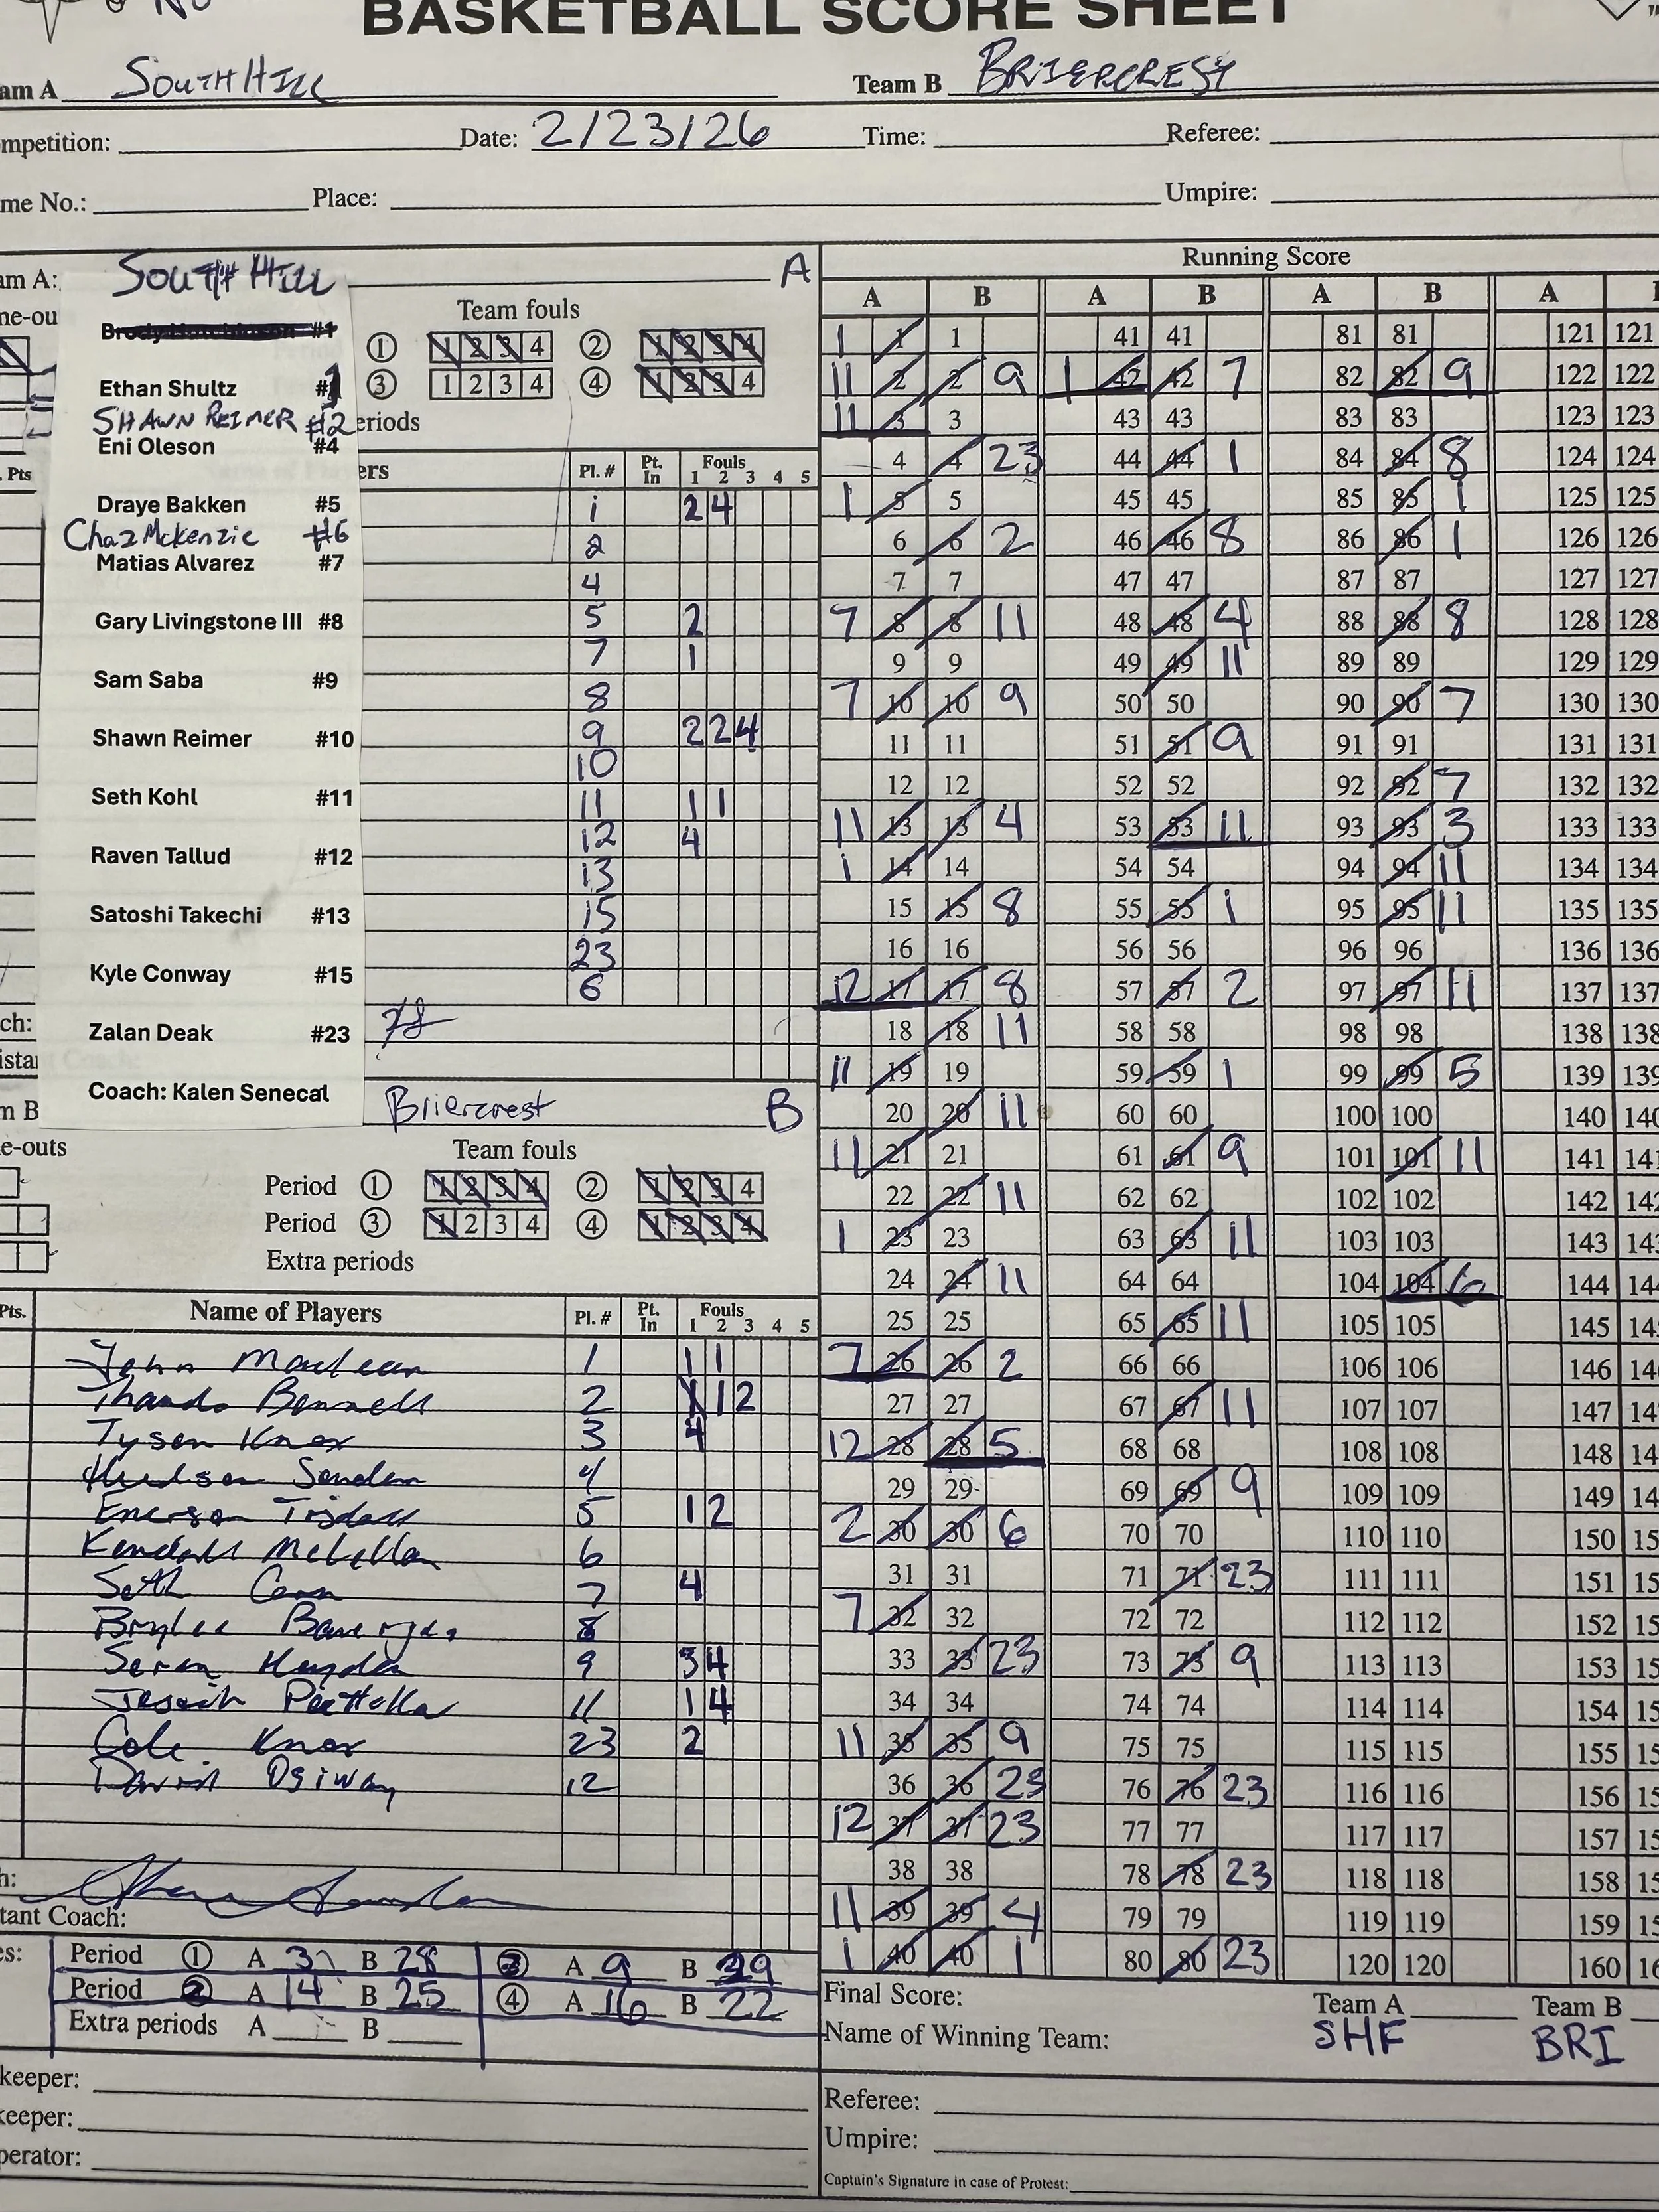 No
BASKETBALL SCORE SHEET
am A SOUTH HILL Team B BRIERCREST
mpetition: Date: 2/23/26 Time: Referee:
me No.: Place: Umpire:
am A: SOUTH HILL A
me-ou Team fouls
#1
① 1 2 3 4 ② 1 2 3 4
Ethan Shultz #1 ③ 1 2 3 4 ④ 1 2 3 4
SHAWN REIMER #2 eriods
Eni Oleson #4
. Pts ers Pl. # Pt. In Fouls 1 2 3 4 5
Draye Bakken #5
Chaz Mckenzie #6
Matias Alvarez #7
Gary Livingstone III #8
Sam Saba #9
Shawn Reimer #10
Seth Kohl #11
Raven Tallud #12
Satoshi Takechi #13
Kyle Conway #15
Zalan Deak #23
Coach: Kalen Senecal
1 2 4
2
4
5 2
7 1
8
9 2 2 4
10
11 1 1
12 4
13
15
23
6
ch:
istan
m B Briercrest B
e-outs Team fouls
Period ① 1 2 3 4 ② 1 2 3 4
Period ③ 1 2 3 4 ④ 1 2 3 4
Extra periods
Pts. Name of Players Pl. # Pt. In Fouls 1 2 3 4 5
John Maclean 1 1 1
Thando Bennett 2 1 1 2
Tysen Knox 3 4
4
5 1 2
Kendall McLellan 6
Seth 7 4
8
Hayden 9 3 4
11 1 4
Cole Knox 23 2
David Ogiway 12
h:
tant Coach:
es: Period ① A 3 B 28 ③ A 9 B 29
Period 2 A 14 B 25 ④ A 16 B 22
Extra periods A B
keeper:
keeper:
perator:
Running Score
A B A B A B A
1 1 1 41 41 81 81 121 121
11 2 2 9 1 42 42 7 82 82 9 122 122
11 3 3 43 43 83 83 123 123
4 4 23 44 44 1 84 84 8 124 124
1 5 5 45 45 85 85 1 125 125
6 6 2 46 46 8 86 86 1 126 126
7 7 47 47 87 87 127 127
7 8 8 11 48 48 4 88 88 8 128 128
9 9 49 49 11 89 89 129 129
7 10 10 9 50 50 90 90 7 130 130
11 11 51 51 9 91 91 131 131
12 12 52 52 92 92 7 132 132
11 13 13 4 53 53 11 93 93 3 133 133
1 14 14 54 54 94 94 11 134 134
15 15 8 55 55 1 95 95 11 135 135
16 16 56 56 96 96 136 136
12 17 17 8 57 57 2 97 97 11 137 137
18 18 11 58 58 98 98 138 138
11 19 19 59 59 1 99 99 5 139 139
20 20 11 60 60 100 100 140 140
11 21 21 61 61 9 101 101 11 141 141
22 22 11 62 62 102 102 142 142
1 23 23 63 63 11 103 103 143 143
24 24 11 64 64 104 104 6 144 144
25 25 65 65 11 105 105 145 14
7 26 26 2 66 66 106 106 146 14
27 27 67 67 11 107 107 147 14
12 28 28 5 68 68 108 108 148 14
29 29 69 69 9 109 109 149 14
2 30 30 6 70 70 110 110 150 15
31 31 71 71 23 111 111 151 15
7 32 32 72 72 112 112 152 15
33 33 23 73 73 9 113 113 153 15
34 34 74 74 114 114 154 15
11 35 35 9 75 75 115 115 155 15
36 36 23 76 76 23 116 116 156 15
12 37 37 23 77 77 117 117 157 15
38 38 78 78 23 118 118 158 15
11 39 39 4 79 79 119 119 159 15
1 40 40 1 80 80 23 120 120 160 16
Final Score: Team A SHF Team B BRI
Name of Winning Team:
Referee:
Umpire:
Captain's Signature in case of Protest: